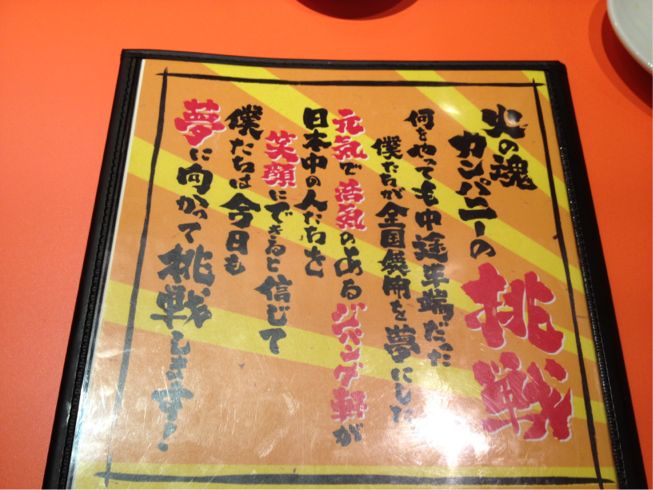 火の魂
カンパニーの
挑戦
何をやっても中途半端だった
僕たちが全国展開を夢にした
元気で活気のあるジパング軒が
日本中の人たちを
笑顔にできると信じて
僕たちは今日も
夢に向かって挑戦します!